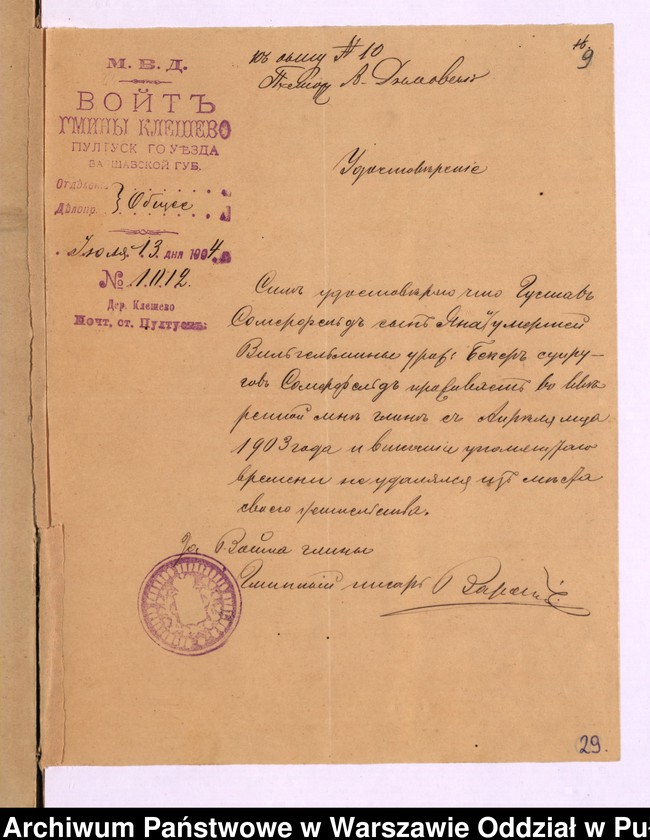 къ акту № 10
9
М. В. Д.
ВОЙТЪ
ГМИНЫ КЛЕШЕВО
ПУЛТУСК ГО УѢЗДА
ВА ШАВСКОЙ ГУБ.
Отдѣлен.
Дѣлопр. } Общее
Іюля 13 дня 1904
№ 1012.
Дер. Клешево
Почт. ст. Пултускъ
Удостовѣреніе
Симъ удостовѣряю что Густавъ
Сомерфельдъ сынъ Яна и умершей
Вильгельмины урож: Бекеръ супру-
говъ Сомерфельдъ проживаетъ во ввѣ
ренной мнѣ гминѣ съ Апрѣля мца
1903 года и въ теченіи упомянутаго
времени не удалялся изъ мѣста
своего жительства.
За Войта гмины
Гминный писарь
29.
Archiwum Państwowe w Warszawie Oddział w Pu